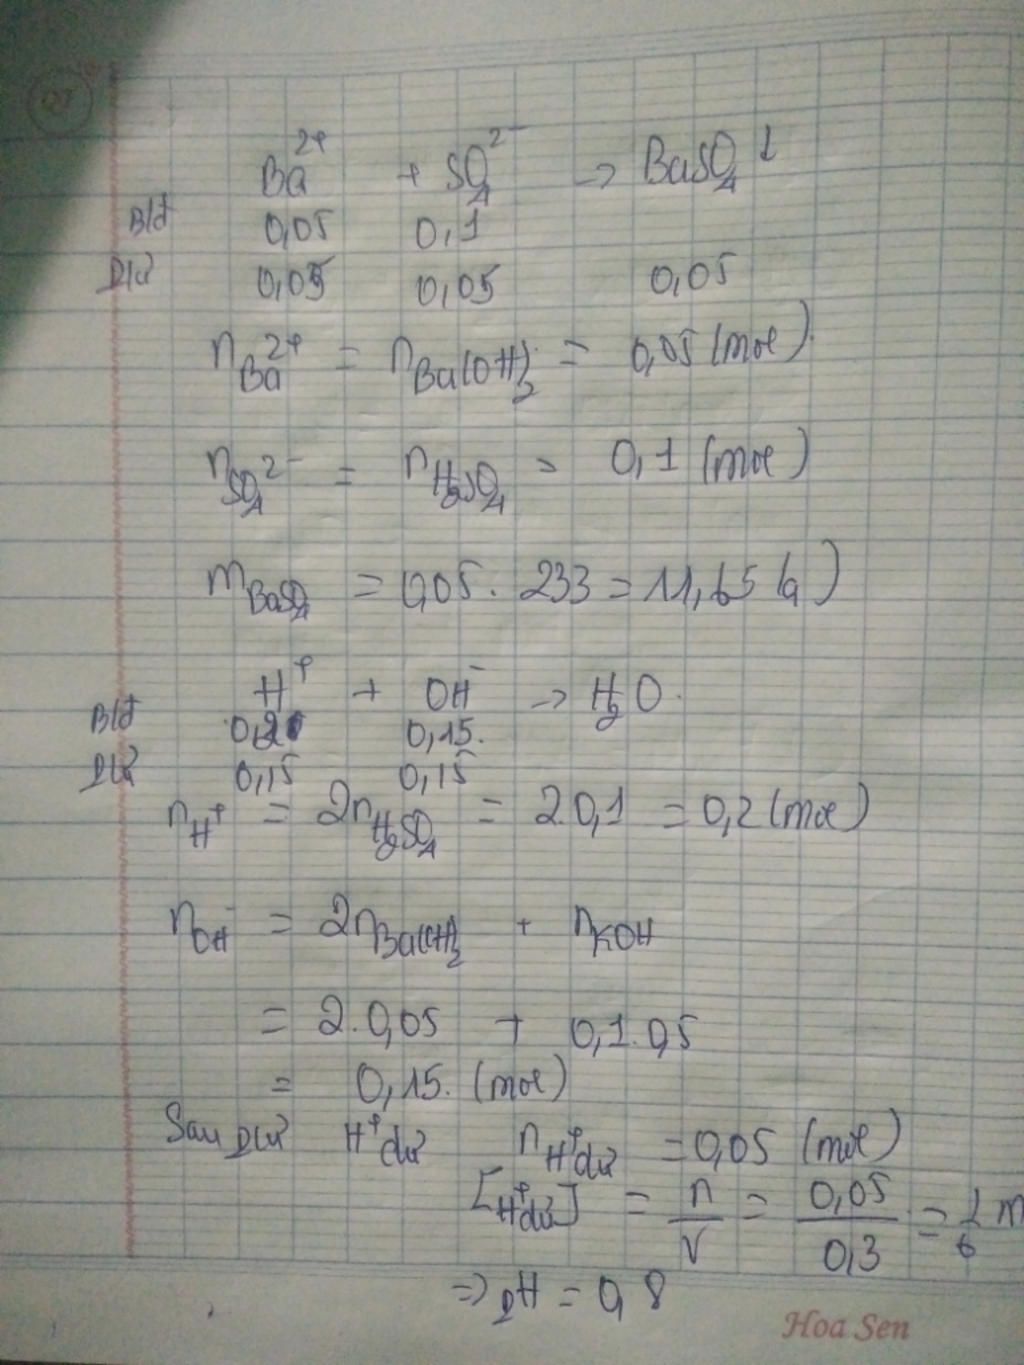 Ba²⁺ + SO₄²⁻ → BaSO₄↓
Bđ 0,05 0,1
Pư 0,05 0,05 0,05
nBa²⁺ = nBa(OH)₂ = 0,05 (mol)
nSO₄²⁻ = nH₂SO₄ = 0,1 (mol)
mBaSO₄ = 0,05. 233 = 11,65 (g)
H⁺ + OH⁻ → H₂O.
Bđ 0,2 0,15.
Pư 0,15 0,15
nH⁺ = 2nH₂SO₄ = 2.0,1 = 0,2 (mol)
nOH⁻ = 2nBa(OH)₂ + nKOH
= 2.0,05 + 0,1.0,5
= 0,15. (mol)
Sau Pư H⁺dư nH⁺dư = 0,05 (mol)
[H⁺dư] = n/V = 0,05/0,3 = 1/6 M
=> pH = 0,8
Hoa Sen